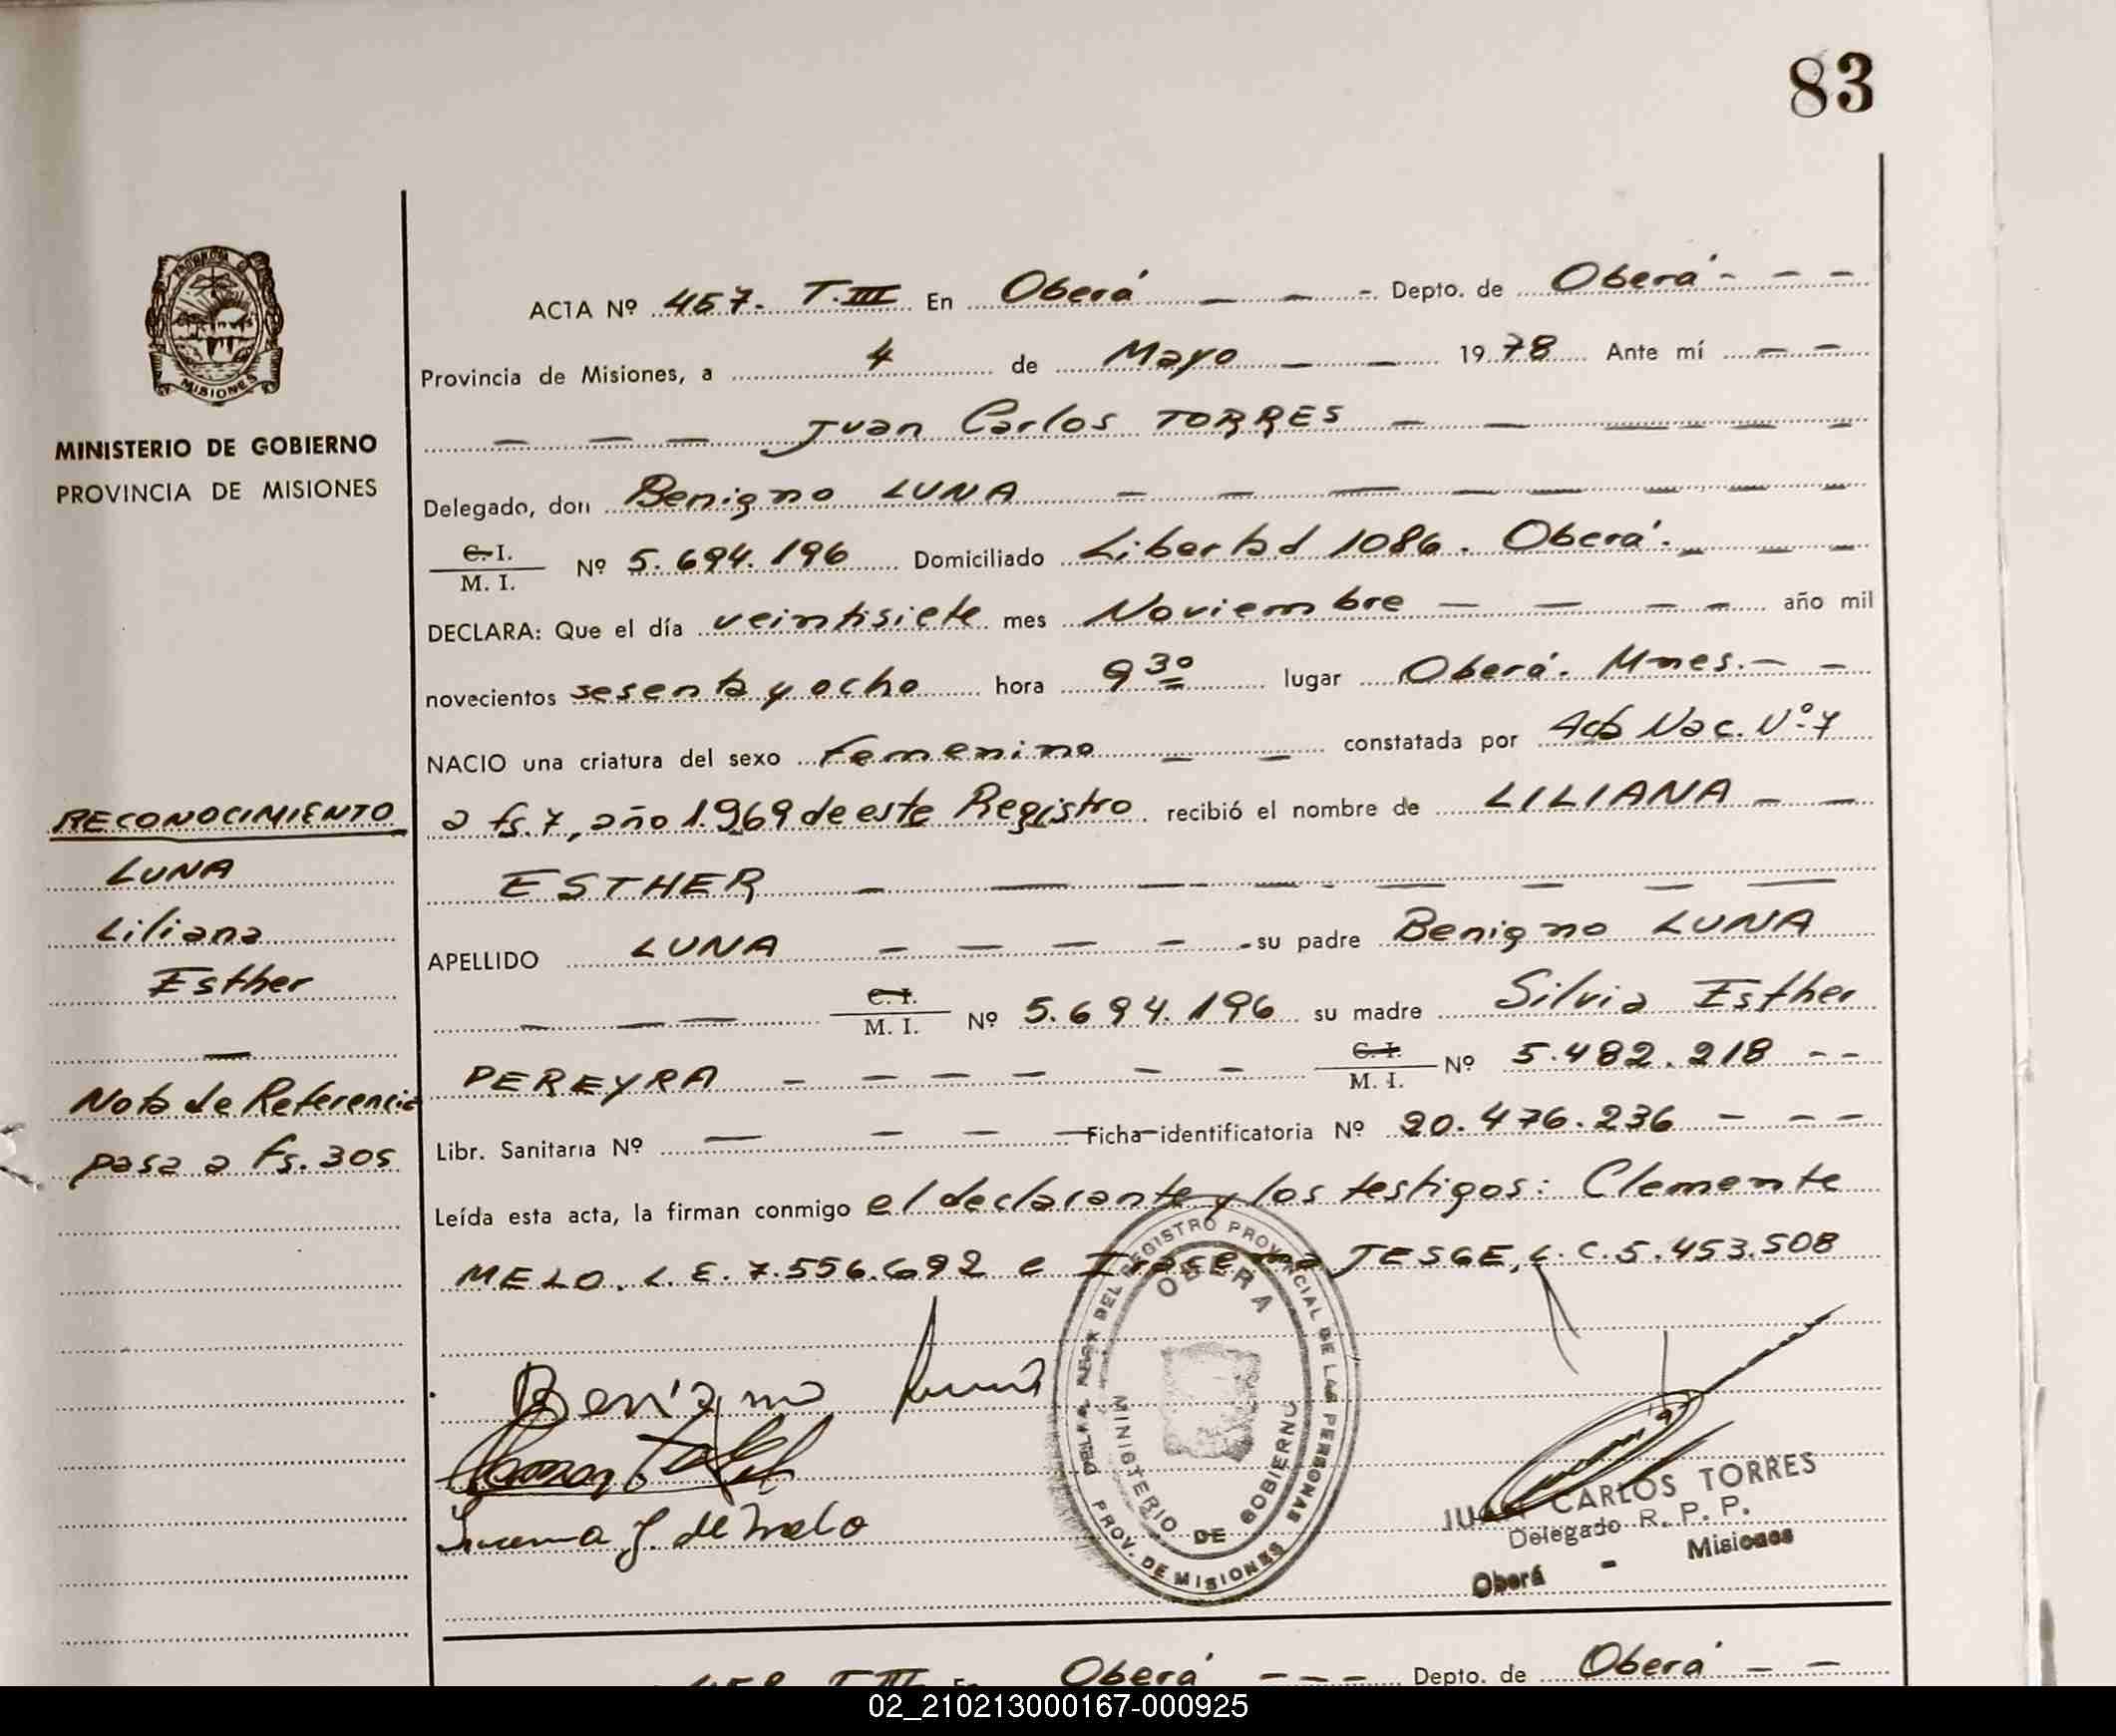 83
PROVINCIA DE
MISIONES
MINISTERIO DE GOBIERNO
PROVINCIA DE MISIONES
ACTA Nº 457. T.III En Oberá Depto. de Oberá
Provincia de Misiones, a 4 de Mayo 1978 Ante mí
Juan Carlos TORRES
Delegado, don Benigno LUNA
C. I.
M. I. Nº 5.694.196 Domiciliado Libertad 1086. Oberá.
DECLARA: Que el día veintisiete mes Noviembre año mil
novecientos sesenta y ocho hora 9 30 lugar Oberá. Mnes.
NACIO una criatura del sexo femenino constatada por Acta Nac. Nº 7
a fs. 7, año 1.969 de este Registro recibió el nombre de LILIANA
ESTHER
APELLIDO LUNA su padre Benigno LUNA
C. I.
M. I. Nº 5.694.196 su madre Silvia Esther
PEREYRA C. I.
M. I. Nº 5.482.218
Libr. Sanitaria Nº Ficha identificatoria Nº 20.476.236
Leída esta acta, la firman conmigo el declarante y los testigos: Clemente
MELO. L.E. 7.556.692 e Iracema JESGE, L.C. 5.453.508
RECONOCIMIENTO
LUNA
Liliana
Esther
Nota de Referencia
pasa a Fs. 305
Benigno Luna
J. de Melo
DEL REGISTRO PROVINCIAL DE LAS PERSONAS
OBERA
MINISTERIO DE GOBIERNO
PROV. DE MISIONES
JUAN CARLOS TORRES
Delegado R. P. P.
Oberá - Misiones
458 T III En Oberá Depto. de Oberá
02_210213000167-000925